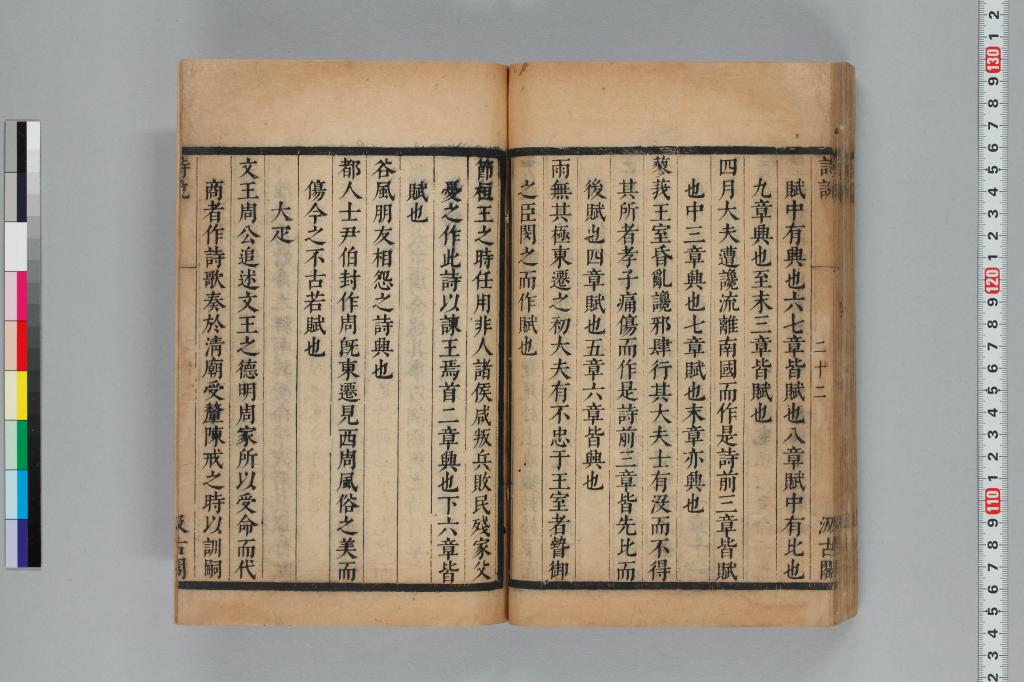 詩說
二十二
汲古閣
賦中有興也六七章皆賦也八章賦中有比也
九章興也至末三章皆賦也
四月大夫遭讒流離南國而作是詩前三章皆賦
也中三章興也七章賦也末章亦興也
蓼莪王室昏亂讒邪肆行其大夫士有沒而不得
其所者孝子痛傷而作是詩前三章皆先比而
後賦也四章賦也五章六章皆興也
雨無其極東遷之初大夫有不忠于王室者暬御
之臣閔之而作賦也
節桓王之時任用非人諸侯咸叛兵敗民殘家父
憂之作此詩以諫王焉首二章興也下六章皆
賦也
谷風朋友相怨之詩興也
都人士尹伯封作周旣東遷見西周風俗之美而
傷今之不古若賦也
大疋
文王周公追述文王之德明周家所以受命而代
商者作詩歌奏於清廟受釐陳戒之時以訓嗣